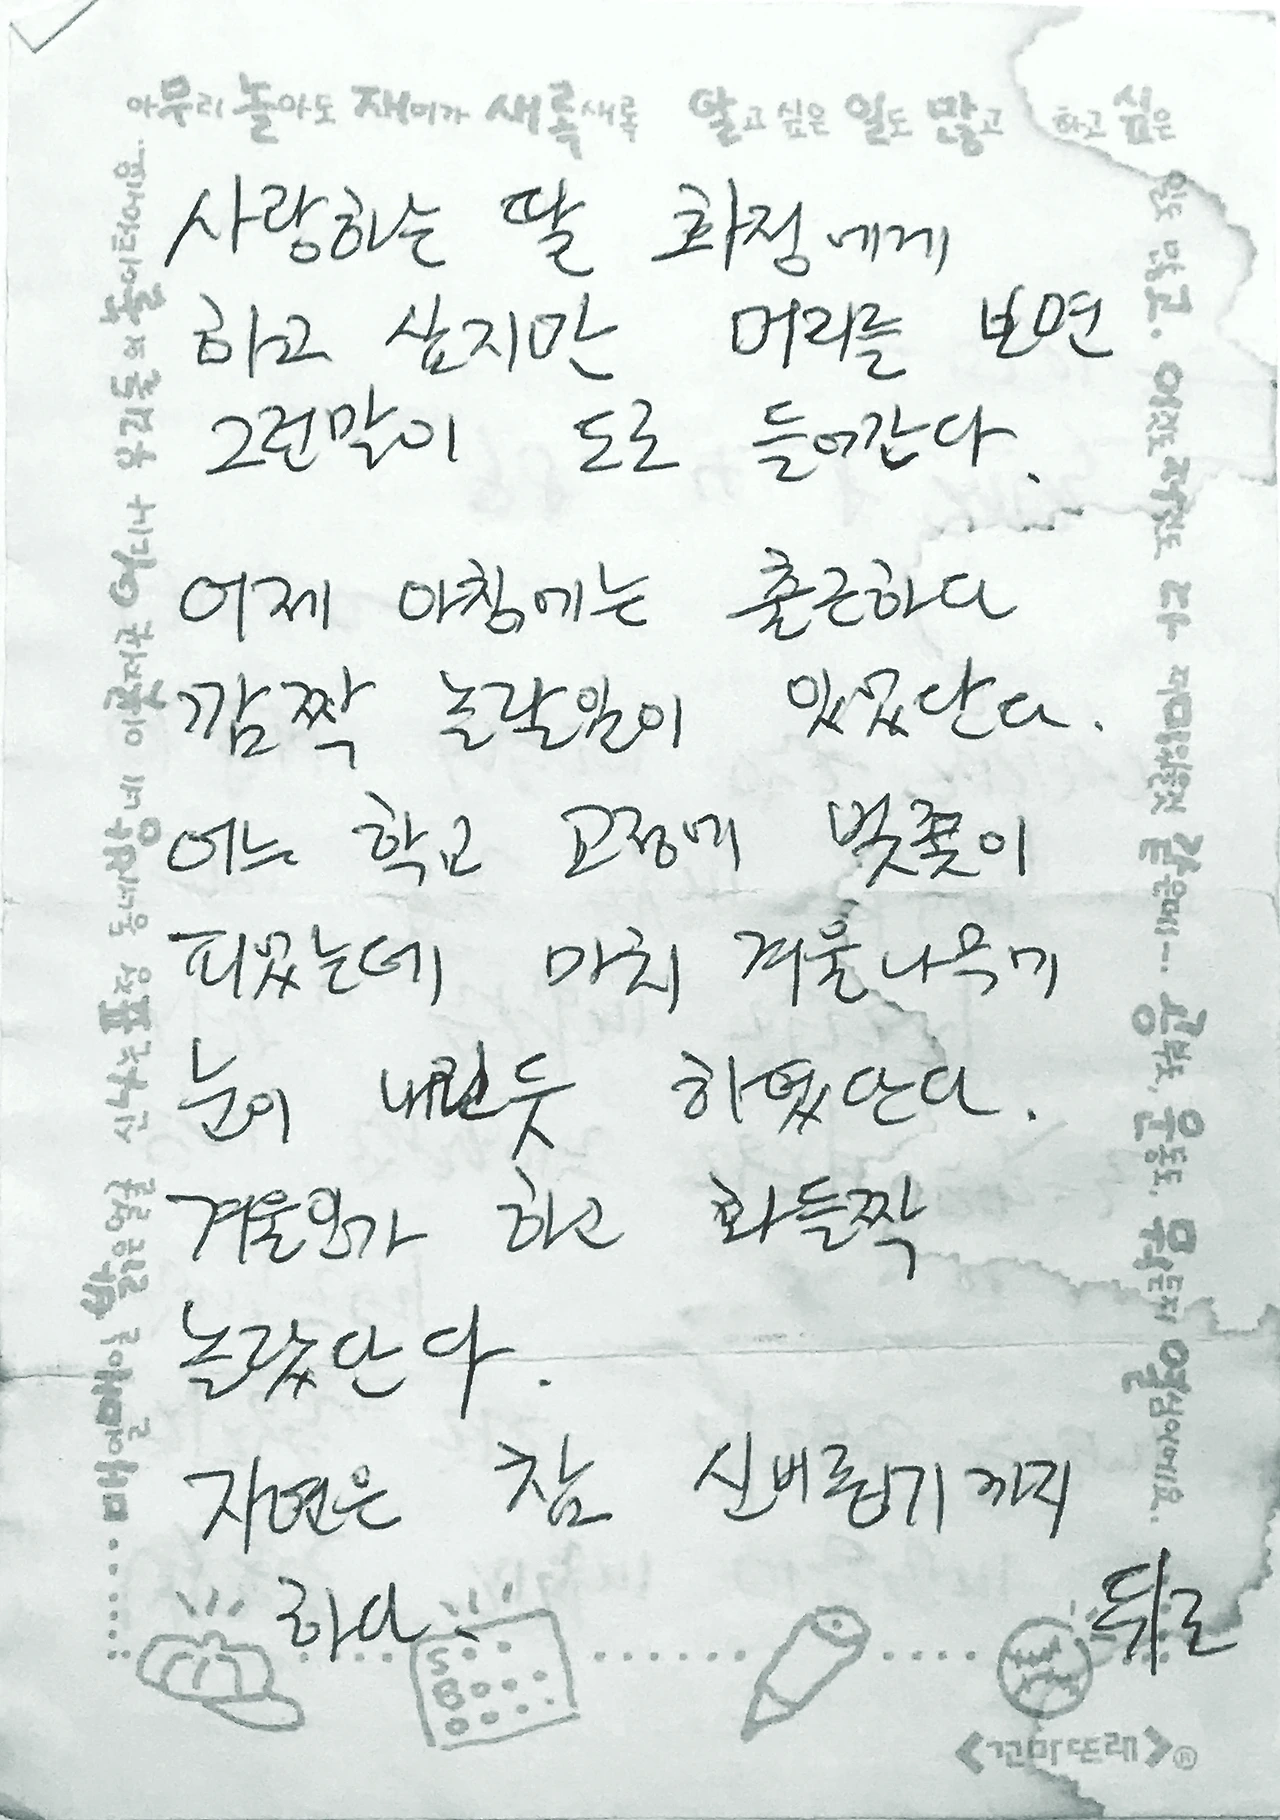 아무리 놀아도 재미가 새록새록 알고 싶은 일도 많고 하고 싶은
일도 많고.
사랑하는 딸 화정에게
하고 싶지만 머리를 보면
그런말이 도로 들어간다.
어제 아침에는 출근하다
깜짝 놀랄일이 있었단다.
어느 학교 교정에 벚꽃이
피었는데 마치 겨울나무에
눈이 내린듯 하였단다.
겨울인가 하고 화들짝
놀랐단다.
자연은 참 신비롭기까지
하다
뒤로
신나는 표정 동네방네 이곳저곳 어디나 우리들의 놀이터에요.
S
B
O
<꼬마또래>®